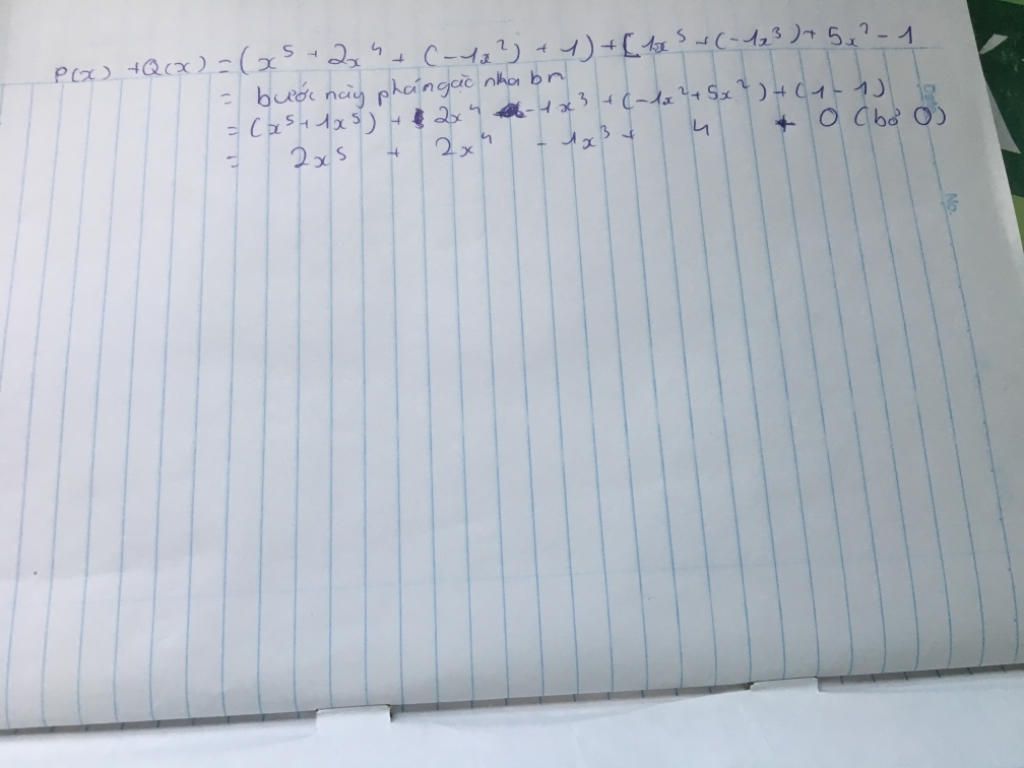 P(x) + Q(x) = (x⁵ + 2x⁴ + (-1x²) + 1) + [1x⁵ + (-1x³) + 5x² - 1
= bước này phá ngoặc nha bn
= (x⁵ + 1x⁵) + 2x⁴ - 1x³ + (-1x² + 5x²) + (1 - 1)
= 2x⁵ + 2x⁴ - 1x³ + 4 + 0 (bỏ 0)